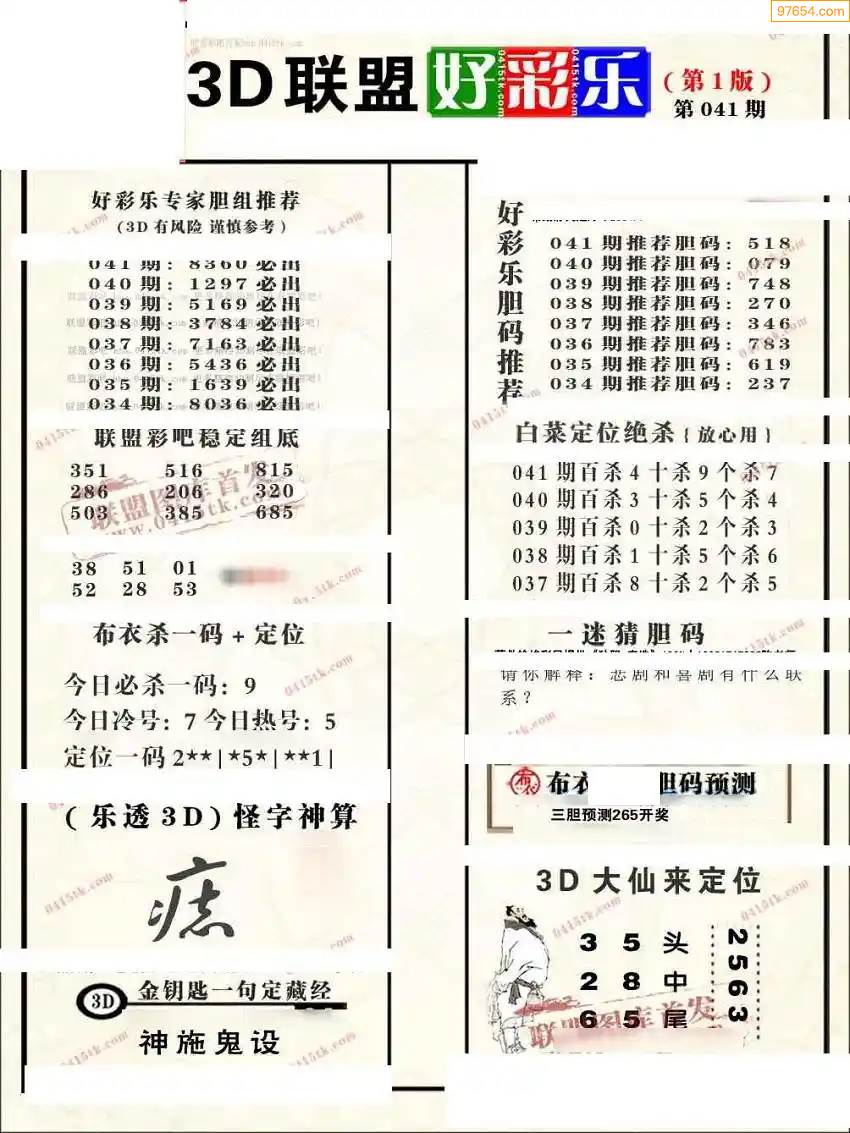 97654.com
3D联盟好彩乐
(第1版)
第041期
好彩乐专家胆组推荐
(3D有风险 谨慎参考)
041期: 8360必出
040期: 1297必出
039期: 5169必出
038期: 3784必出
037期: 7163必出
036期: 5436必出
035期: 1639必出
034期: 8036必出
联盟彩吧稳定组底
351 516 815
286 206 320
503 385 685
联盟图库首发
www.0415tk.com
38 51 01
52 28 53
布衣杀一码+定位
今日必杀一码: 9
今日冷号: 7 今日热号: 5
定位一码 2**|*5*|**1|
(乐透3D)怪字神算
痣
3D 金钥匙一句定藏经
神施鬼设
好彩乐胆码推荐
041期推荐胆码: 518
040期推荐胆码: 079
039期推荐胆码: 748
038期推荐胆码: 270
037期推荐胆码: 346
036期推荐胆码: 783
035期推荐胆码: 619
034期推荐胆码: 237
白菜定位绝杀{放心用}
041期百杀4十杀9个杀7
040期百杀3十杀5个杀4
039期百杀0十杀2个杀3
038期百杀1十杀5个杀6
037期百杀8十杀2个杀5
一迷猜胆码
请你解释: 悲剧和喜剧有什么联
系?
布衣 胆码预测
三胆预测265开奖
3D大仙来定位
3 5 头
2 8 中
6 5 尾
2563
联盟图库首发
0415tk.com